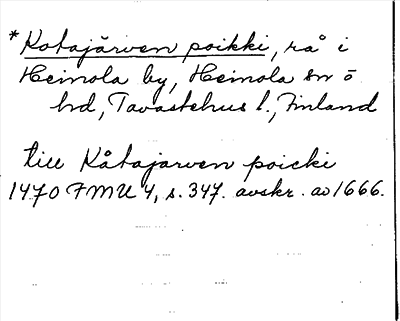 *Kotajärven poikki, rå i
Heinola by, Heinola sn o
hd, Tavastehus l., Finland
till Kåtajarwen poicki
1470 FMU 4, s. 347. avskr. av 1666.